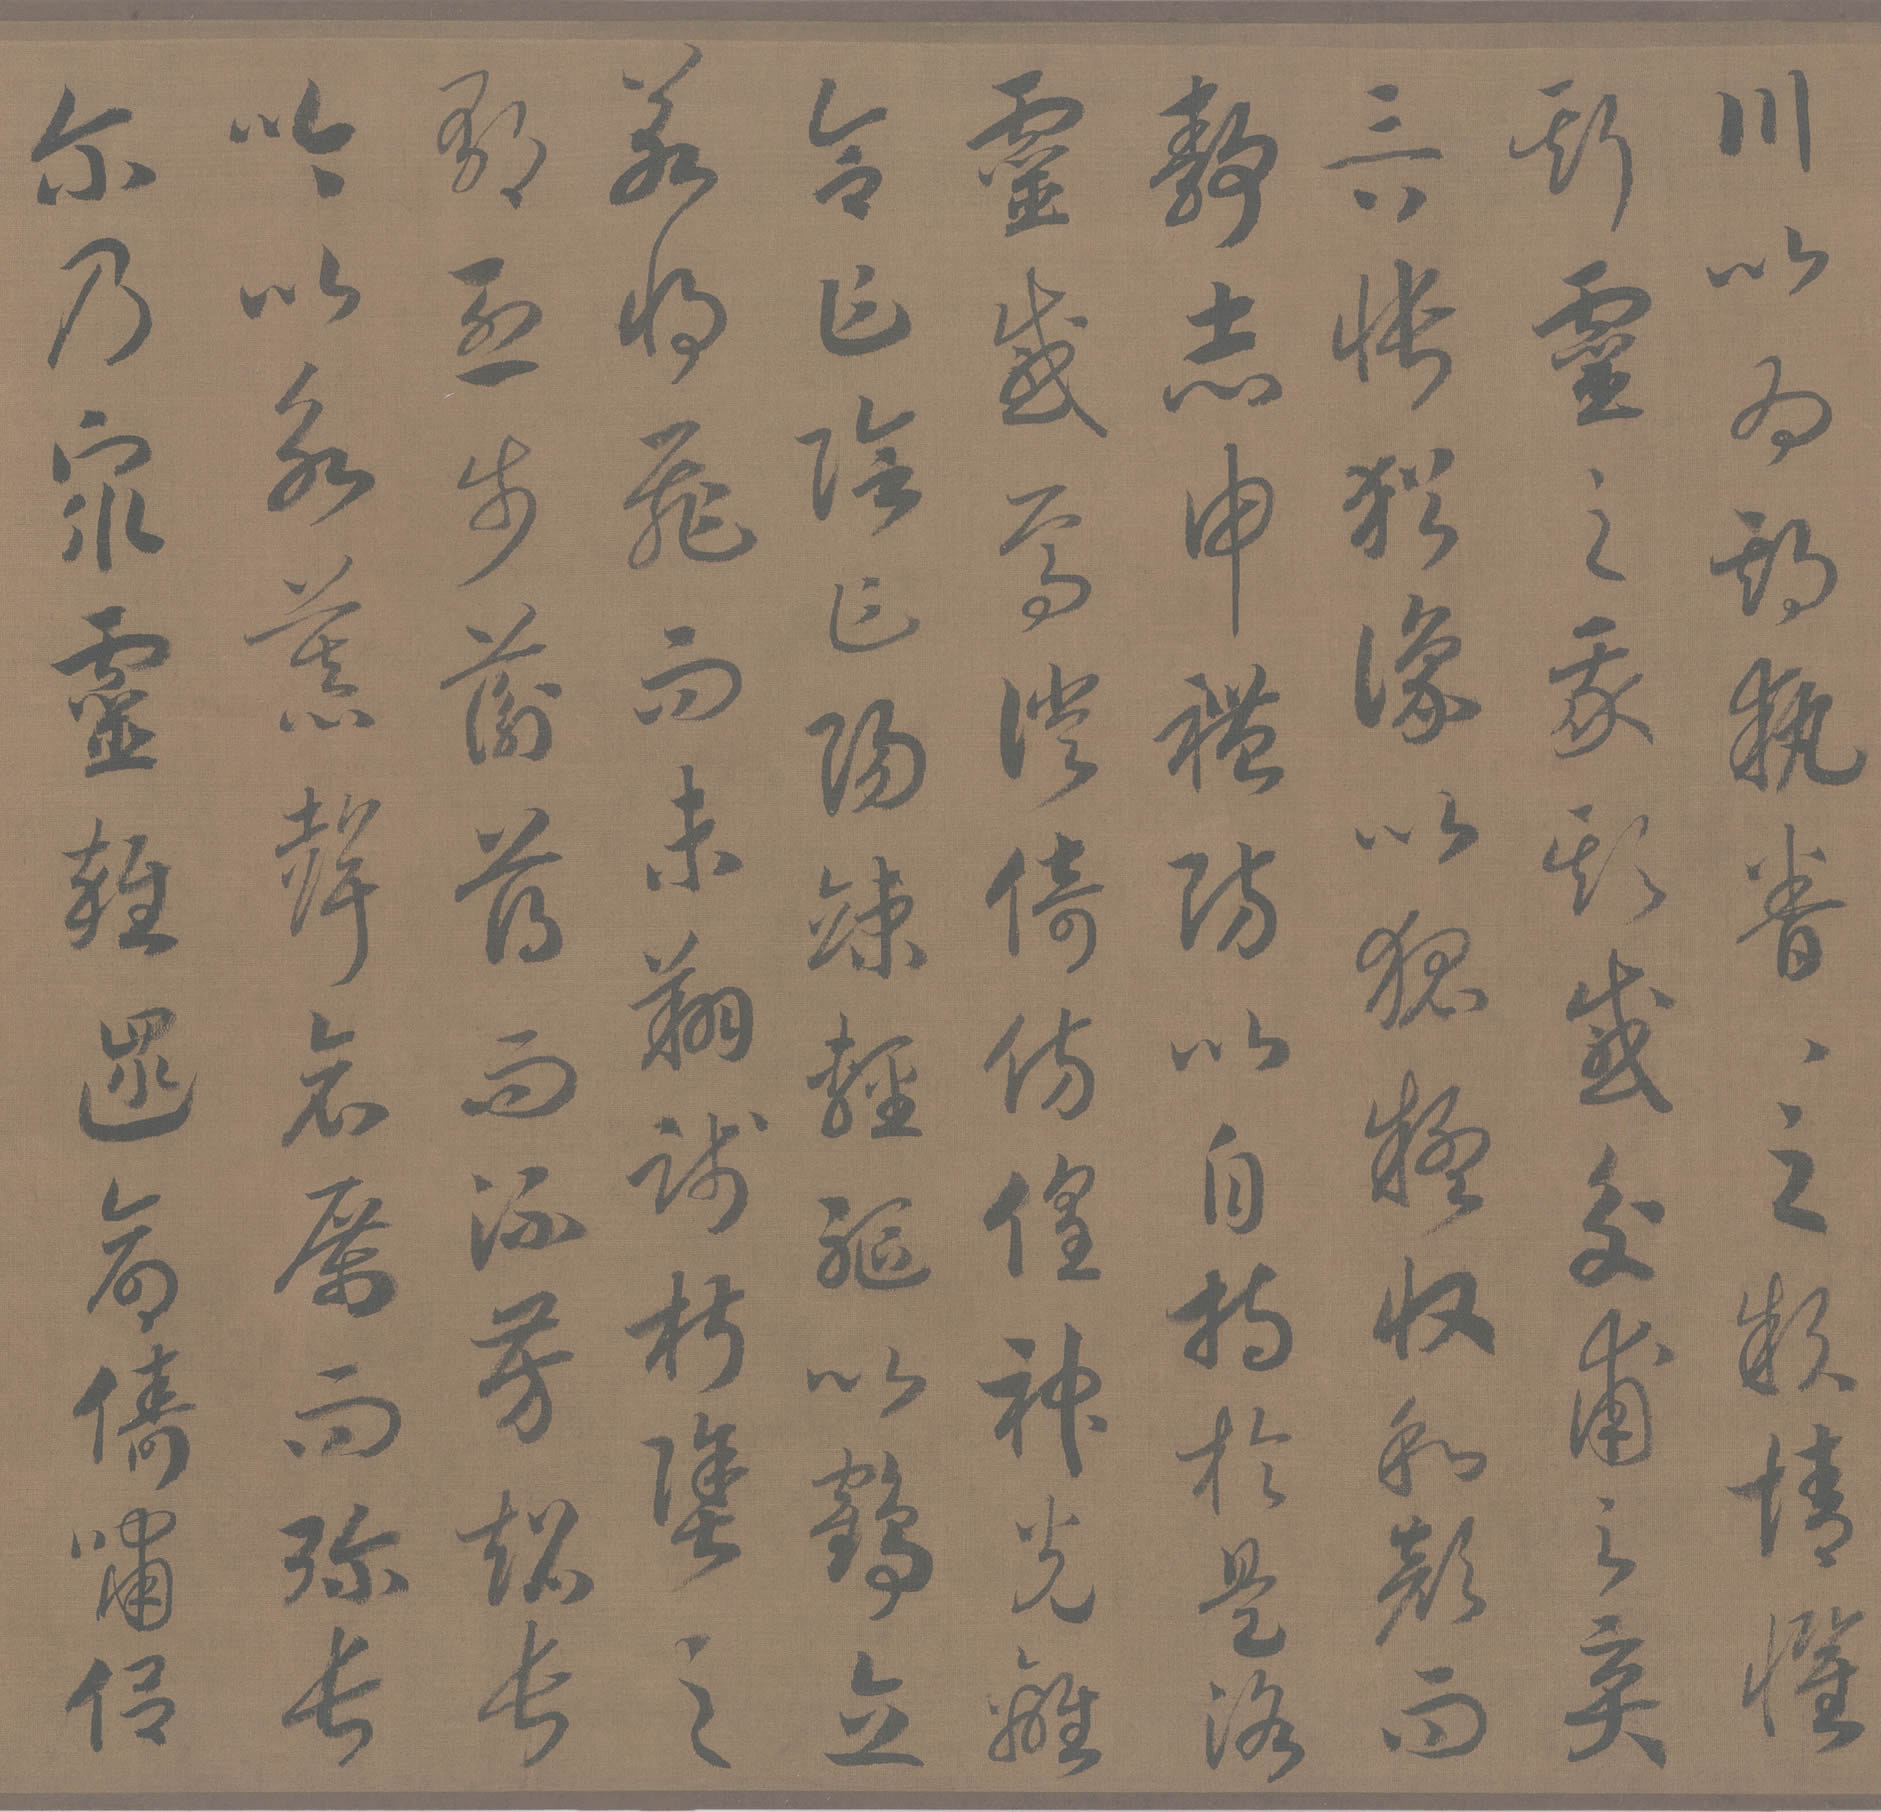 川以為期執眷々之款情懼
斯靈之我欺感交甫之棄
言悵猶豫以狐疑收和顏而
靜志申禮防以自持於是洛
靈感焉徙倚傍偟神光離
合乍陰乍陽竦輕軀以鶴立
若將飛而未翔踐椒塗之
郁烈步蘅薄而流芳超長
吟以永慕聲哀厲而彌長
尔乃眾靈雜遝命儔嘯侶